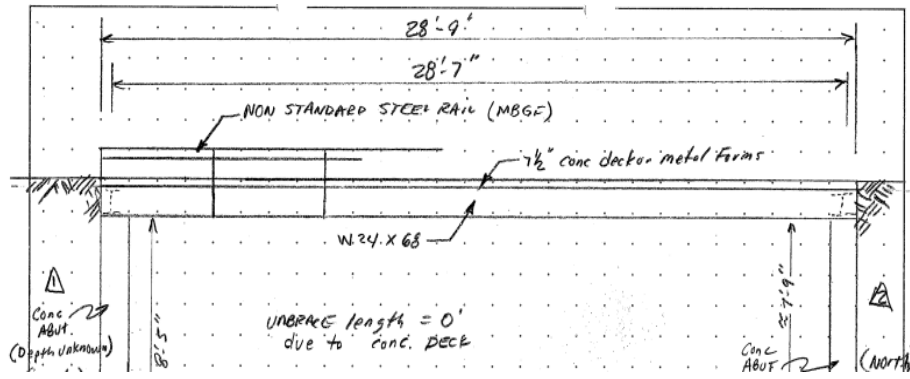 28'-9"
28'-7"
NON STANDARD STEEL RAIL (MBGF)
7½" conc deck on metal Forms
W 24 X 68
1
2
Conc
ABUT.
(Depth unknown)
8'-5"
UNBRACE length = 0'
due to conc. DECK
≈7'-9"
Conc
ABUT
(North